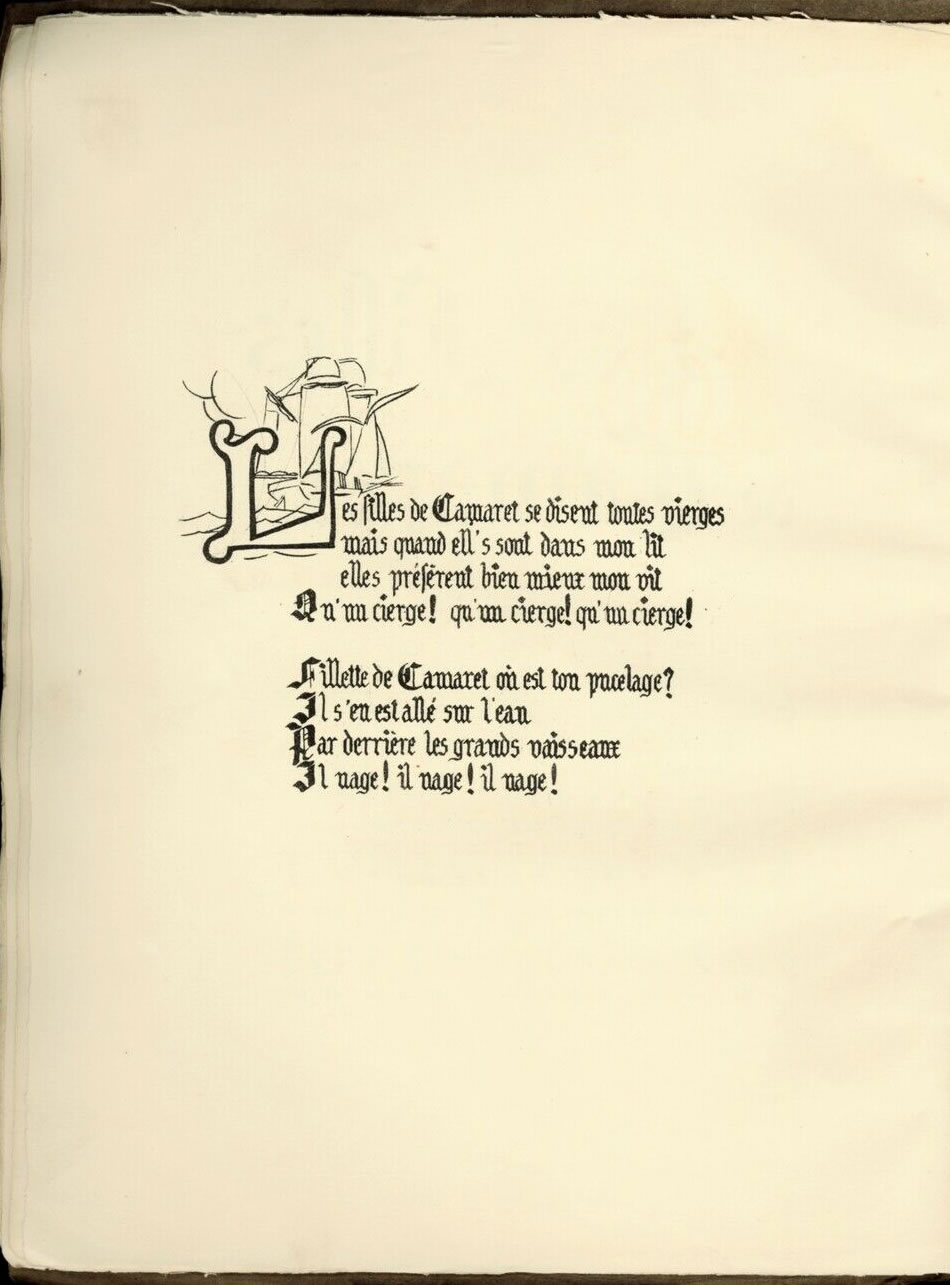 Les filles de Camaret se disent toutes vierges
mais quand ell's sont dans mon lit
elles préfèrent bien mieux mon vit
Qu'un cierge! qu'un cierge! qu'un cierge!
Fillette de Camaret où est ton pucelage?
Il s'en est allé sur l'eau
Par derrière les grands vaisseaux
Il nage! il nage! il nage!